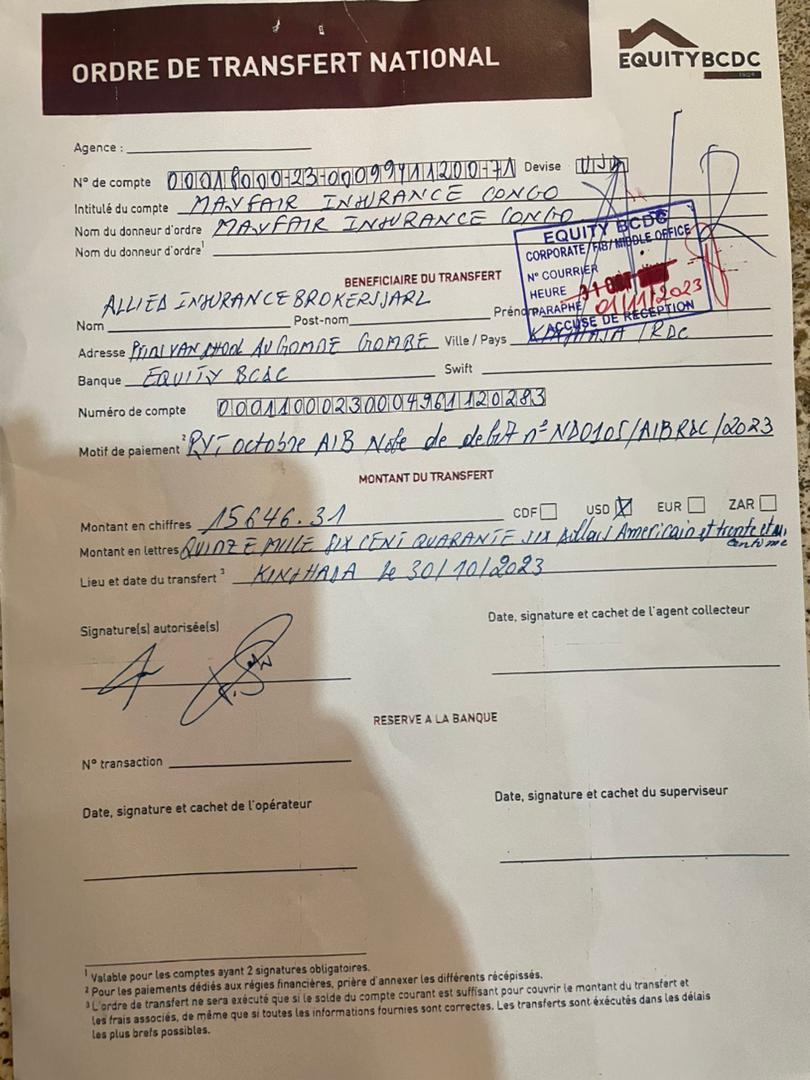 ORDRE DE TRANSFERT NATIONAL
EQUITYBCDC
Agence :
N° de compte 00018000-23-00099411200-71 Devise USD
Intitulé du compte MAYFAIR INSURANCE CONGO
Nom du donneur d'ordre MAYFAIR INSURANCE CONGO
Nom du donneur d'ordre¹
EQUITY BCDC
CORPORATE/FIB/MIDDLE OFFICE
N° COURRIER
HEURE 31 OCT
PARAPHE 01/11/2023
ACCUSE DE RECEPTION
BENEFICIAIRE DU TRANSFERT
ALLIED INSURANCE BROKERS SARL
Nom Post-nom Prénom
Adresse AV GOMBE GOMBE Ville / Pays KINSHASA / RDC
Banque EQUITY BCDC Swift
Numéro de compte 00011000230004961120283
Motif de paiement ² PYT octobre AIB Note de debit n° ND0105/AIBRDC/2023
MONTANT DU TRANSFERT
Montant en chiffres 15646.31 CDF USD X EUR ZAR
Montant en lettres QUINZE MILLE SIX CENT QUARANTE SIX dollars Americain et trente et un centime
Lieu et date du transfert ³ KINSHASA le 30/10/2023
Signature(s) autorisée(s)
Date, signature et cachet de l'agent collecteur
RESERVE A LA BANQUE
N° transaction
Date, signature et cachet de l'opérateur
Date, signature et cachet du superviseur
¹ Valable pour les comptes ayant 2 signatures obligatoires.
² Pour les paiements dédiés aux régies financières, prière d'annexer les différents récépissés.
³ L'ordre de transfert ne sera exécuté que si le solde du compte courant est suffisant pour couvrir le montant du transfert et
les frais associés, de même que si toutes les informations fournies sont correctes. Les transferts sont éxécutés dans les délais
les plus brefs possibles.